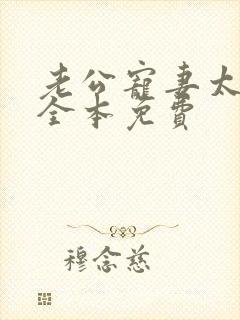 老公寵妻太
全本免費
穆念慈